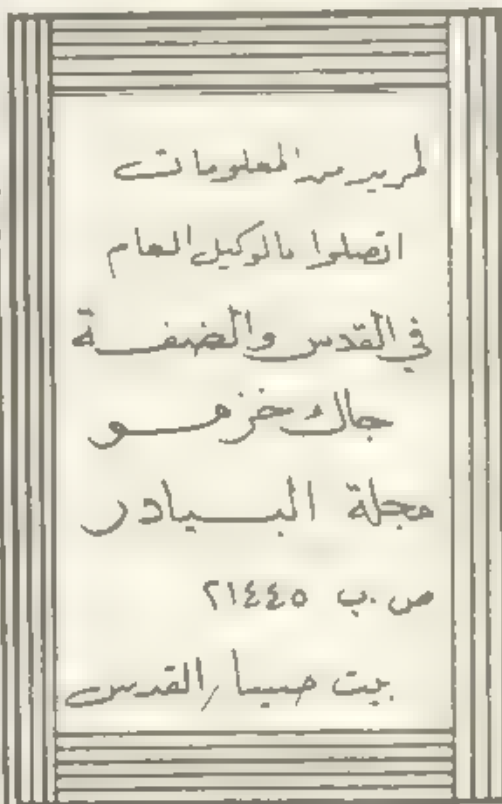 لمزيد من المعلومات
اتصلوا بالوكيل العام
في القدس والضفة
جاك خزمو
مجلة البيادر
ص.ب ٢١٤٤٥
بيت حنينا / القدس